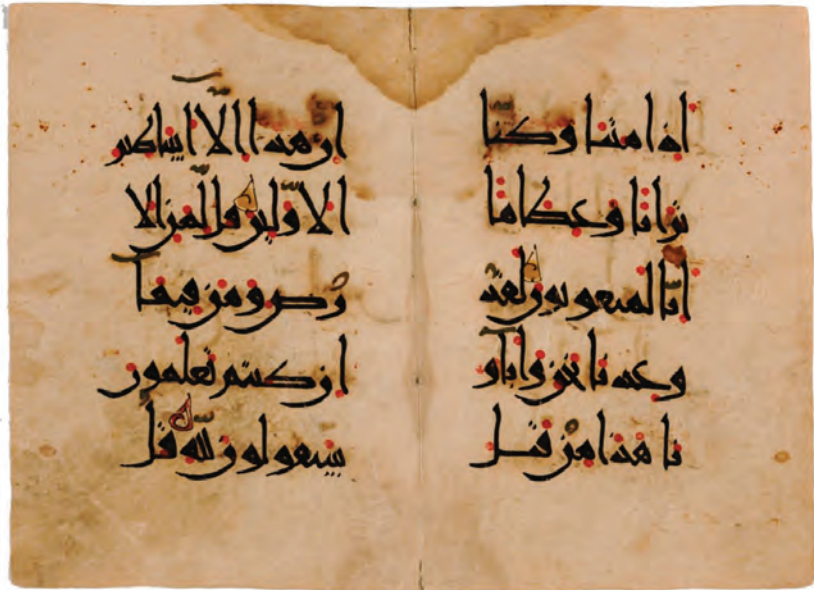 اذا متنا وكنا
ترابا وعظاما
انّا لمبعوثون لقد
وعدنا نحن واباو
نا هذا من قبل
ان هذا الّا اسطير
الاوّلين قل لّمن الا
رض ومن فيها
ان كنتم تعلمون
سيقولون للّه قل